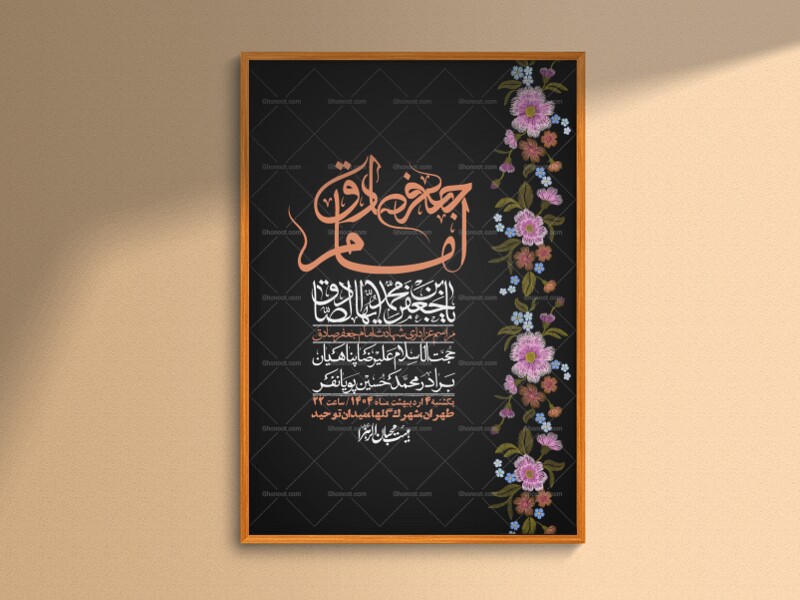 امام
جعفر صادق
یا جعفر بن محمد ایها الصادق
مراسم عزاداری شهادت امام جعفر صادق
حجت الاسلام علیرضا پناهیان
برادر محمدحسین پویانفر
یکشنبه ۴ اردیبهشت ماه ۱۴۰۴ / ساعت ۲۲
طهران، شهرک گلها، میدان توحید
هیئت محبان الزهرا
Ghonoot.com